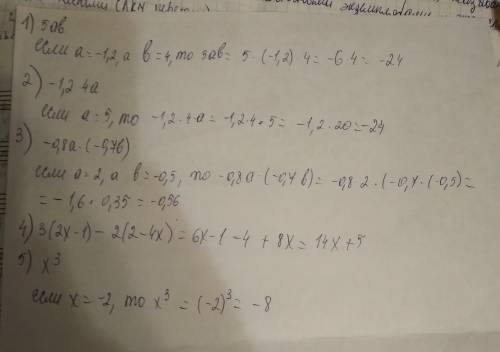 1) 5ав
если а=-1,2, а в=4, то 5ав= 5·(-1,2)·4=-6·4= -24
2) -1,2·4а
если а=5, то -1,2·4·а=-1,2·4·5=-1,2·20=-24
3) -0,8а·(-0,7в)
если а=2, а в=-0,5, то -0,8а·(-0,7в)= -0,8·2·(-0,7·(-0,5)=
=-1,6·0,35=-0,56
4) 3(2х-1)-2(2-4х)=6х-1-4+8х=14х+5
5) х³
если х=-2, то х³=(-2)³=-8